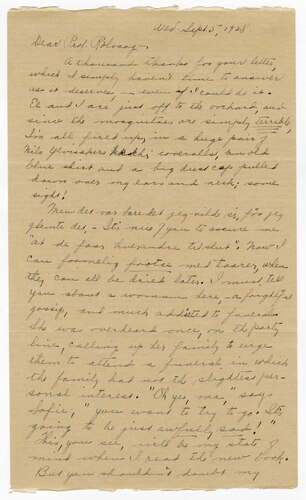 Wed. Sept. 5, 1928
Dear Prof. Rölvaag -
A thousand thanks for your letter,
which I simply haven't time to answer
as it deserves - even if I could do it.
El and I are just off to the orchard, and
since the mosquitoes are simply terrible,
I'm all fixed up, in a huge pair of
Nils khaki coveralls, an old
blue shirt and a big dust cap pulled
down over my ears and neck, some
sight!
Men det var bare det jeg vilde si, før jeg
glemte det, - It's nice of you to assure me
"at de faar hverandre tilslut". Now I
can formelig med taarer, when
they can all be dried later. I must tell
you about a woman here - a frightful
gossip, and much addicted to funerals.
She was overheard once, on the party
line, calling up her family to urge
them to attend a funeral in which
the family had not the slightest per-
sonal interest. "Oh yes, ma," says
Sofie, "you want to try to go. It's
going to be just awfully sad!"
This, you see, will be my state of
mind when I read the new book.
But you shouldn't doubt my